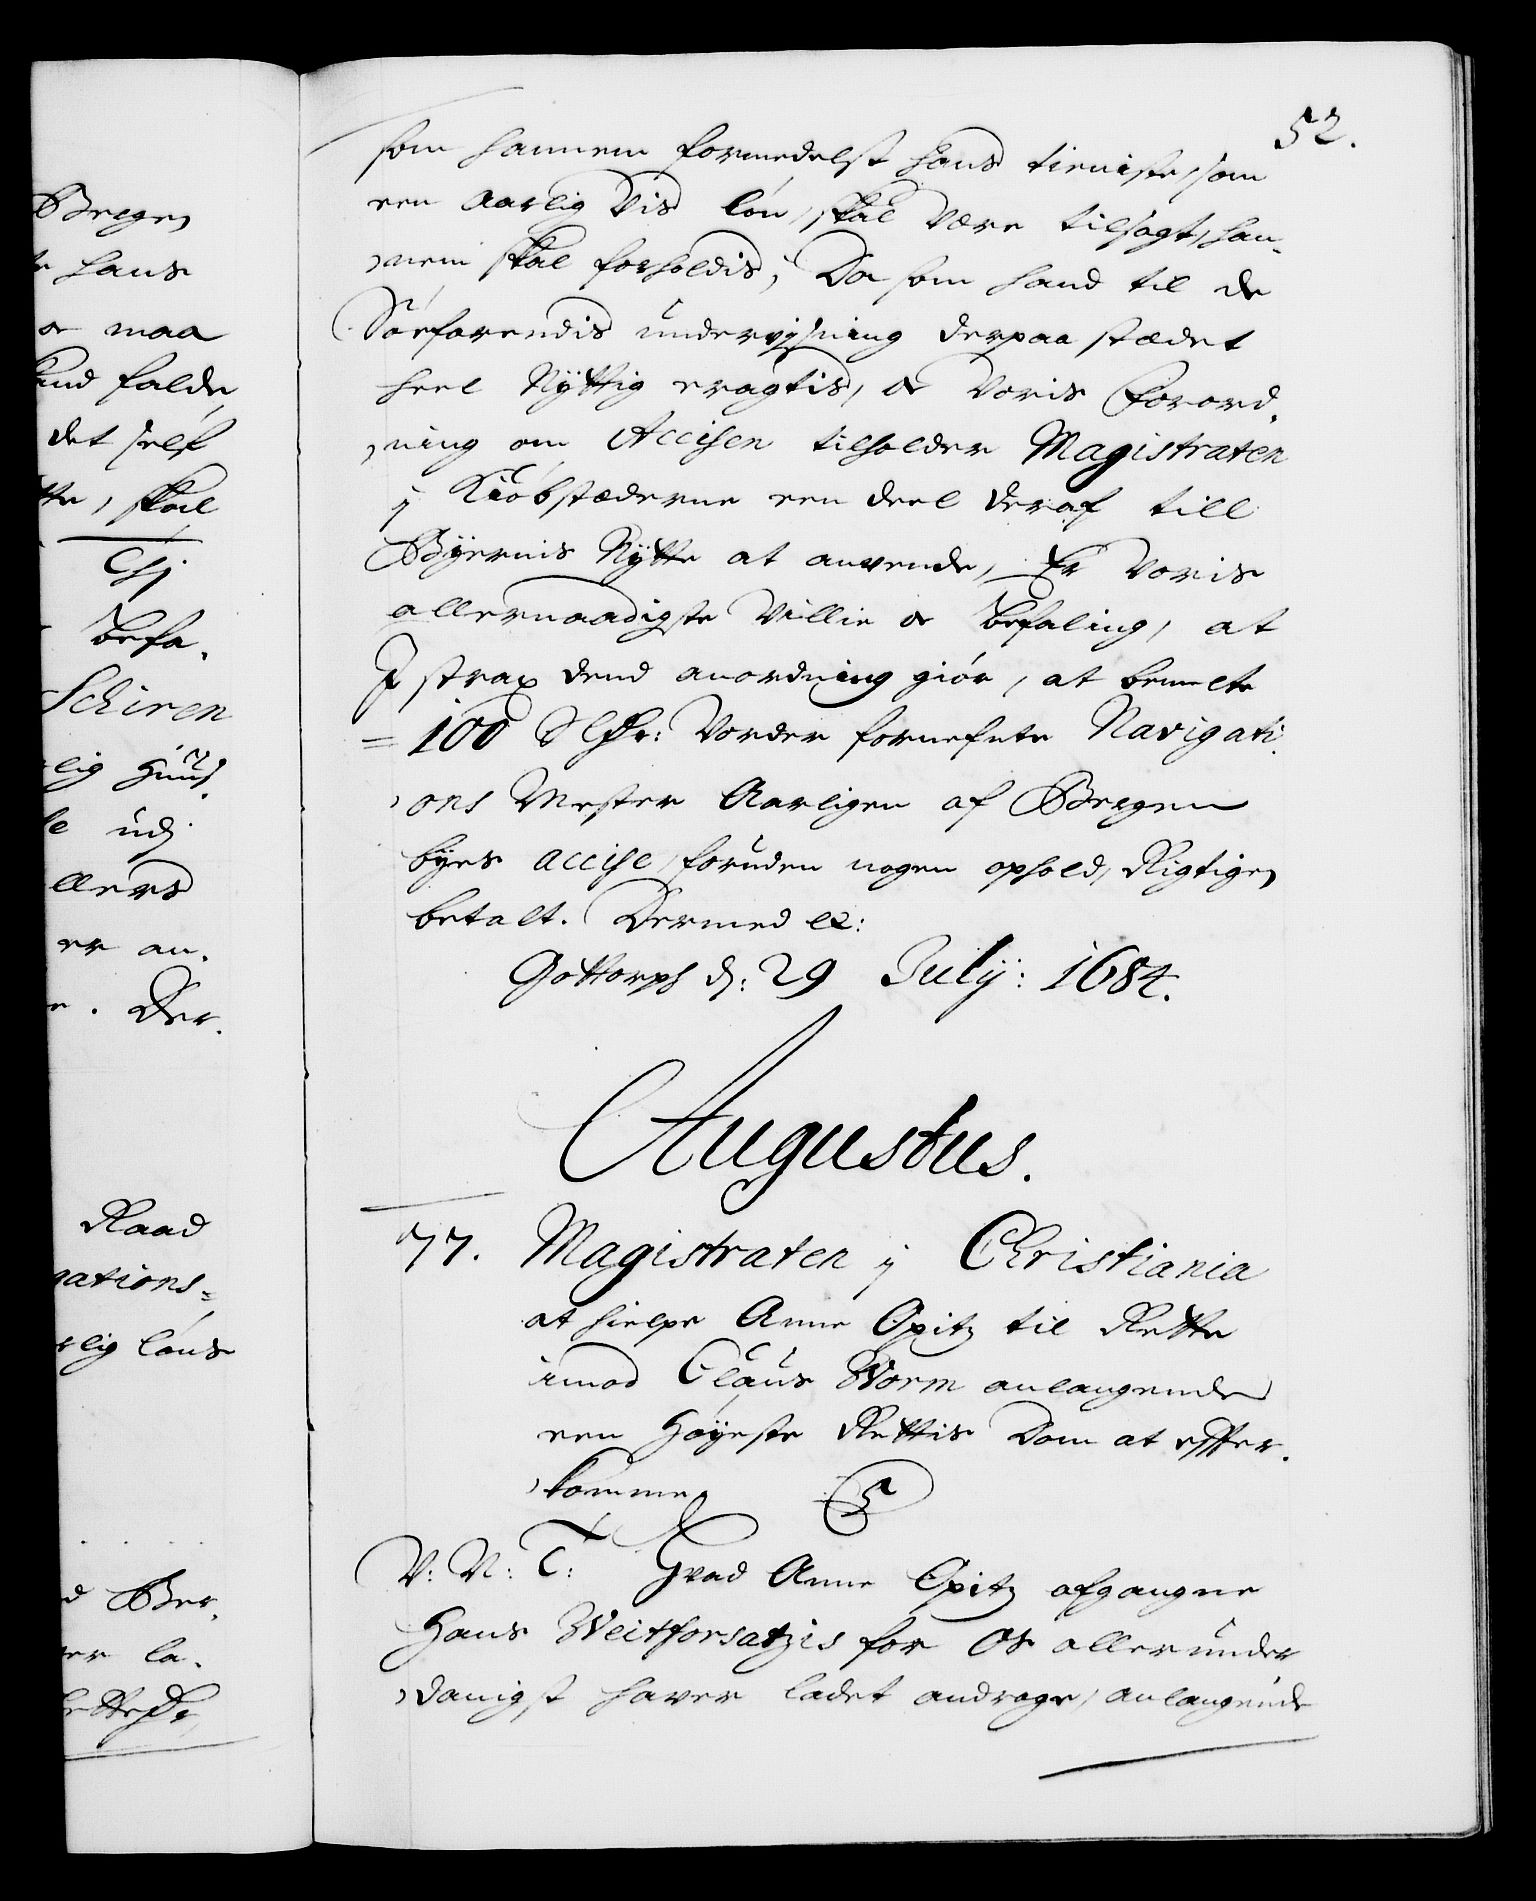 Bregen
hans
maa
falde
det self
skal
Cfj
befa-
Schiren
lig Huus
udj
llers
er an-
Der-
Raad
gations-
rlig løns
Ber-
er la-
52.
som hannem formedelst hans tieniste, som
een Aarlig Vis løn, skal være tilsagt, han-
nem skal forholdis, Da som hand til de
Søefarendis underviisning derpaa stædet
heel Nyttig eragtis, oc Voris Forord-
ning om Accisen tilholder Magistraten
j Kiøbstæderne een deel deraf till
Byernis Nytte at anvende, Er Voris
allernaadigste Villie oc Befaling, at
I strax dend anordning giør, at bemelte
= 100 Slhr: Vorder fornefnte Navigati-
ons Mester Aarligen af Bergen
byes accise, foruden nogen ophold, Rigtigen
betalt. Dermed etc:
Gottorph d: 29 Julij: 1684.
Augustus.
77. Magistraten j Christiania
at hielpe Anne Opitz til Rette
imod Claus Worm anlangende
een Høyeste Rettis Dom at effter-
komme
V: N: T: Hvad Anne Opitz afgangne
Hans Weitforsatzis for Os allerunder
danigst haver ladet andrage, anlangende